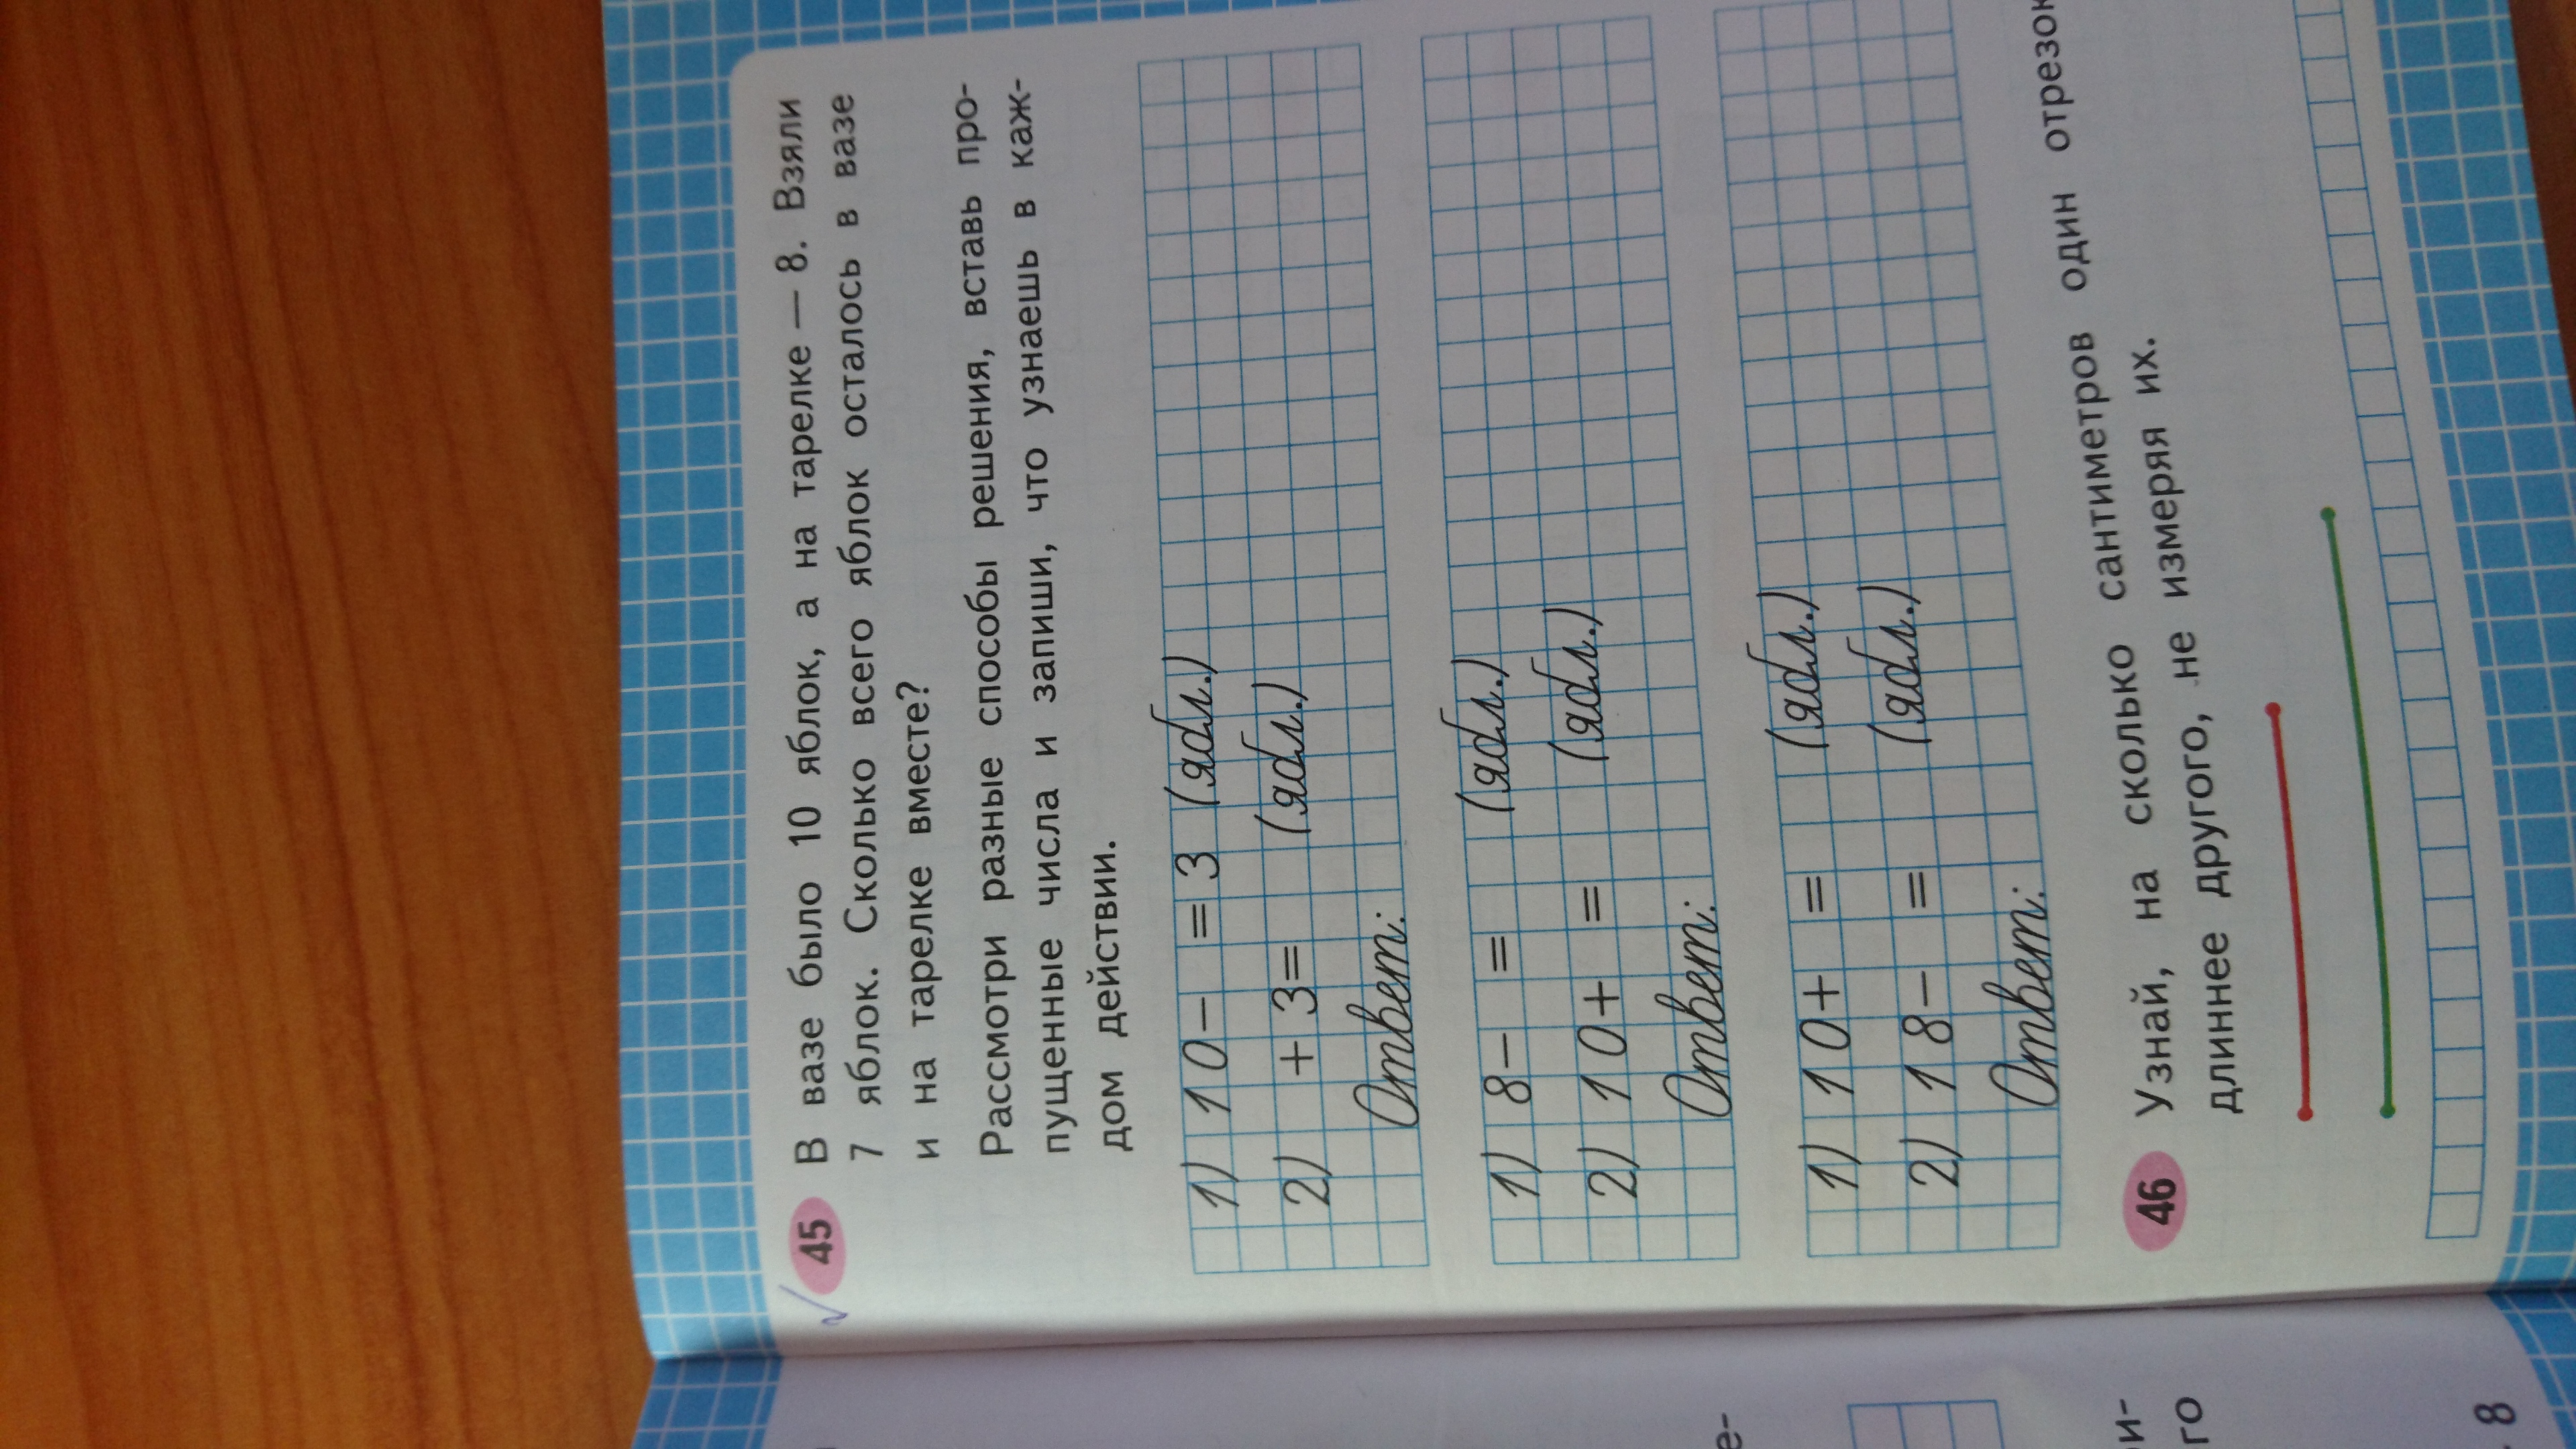 45 В вазе было 10 яблок, а на тарелке — 8. Взяли
7 яблок. Сколько всего яблок осталось в вазе
и на тарелке вместе?
Рассмотри разные способы решения, вставь про-
пущенные числа и запиши, что узнаешь в каж-
дом действии.
1) 10− =3 (ябл.)
2) +3= (ябл.)
Ответ:
1) 8− = (ябл.)
2) 10+ = (ябл.)
Ответ:
1) 10+ = (ябл.)
2) 18− = (ябл.)
Ответ:
46 Узнай, на сколько сантиметров один отрезок
длиннее другого, не измеряя их.
е-
и-
го
8